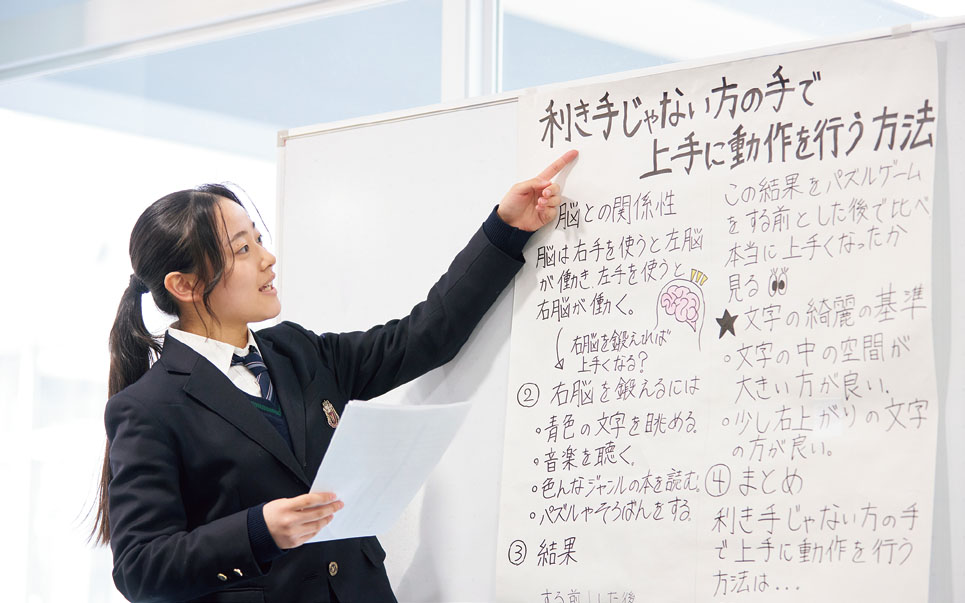 利き手じゃない方の手で
上手に動作を行う方法
脳との関係性
脳は右手を使うと左脳
が働き、左手を使うと
右脳が働く。
右脳を鍛えれば
上手くなる?
② 右脳を鍛えるには
・青色の文字を眺める。
・音楽を聴く。
・色んなジャンルの本を読む。
・パズルやそろばんをする。
③ 結果
この結果をパズルゲーム
をする前とした後で比べ
本当に上手くなったか
見る
★文字の綺麗の基準
・文字の中の空間が
大きい方が良い。
・少し右上がりの文字
の方が良い。
④ まとめ
利き手じゃない方の手
で上手に動作を行う
方法は...